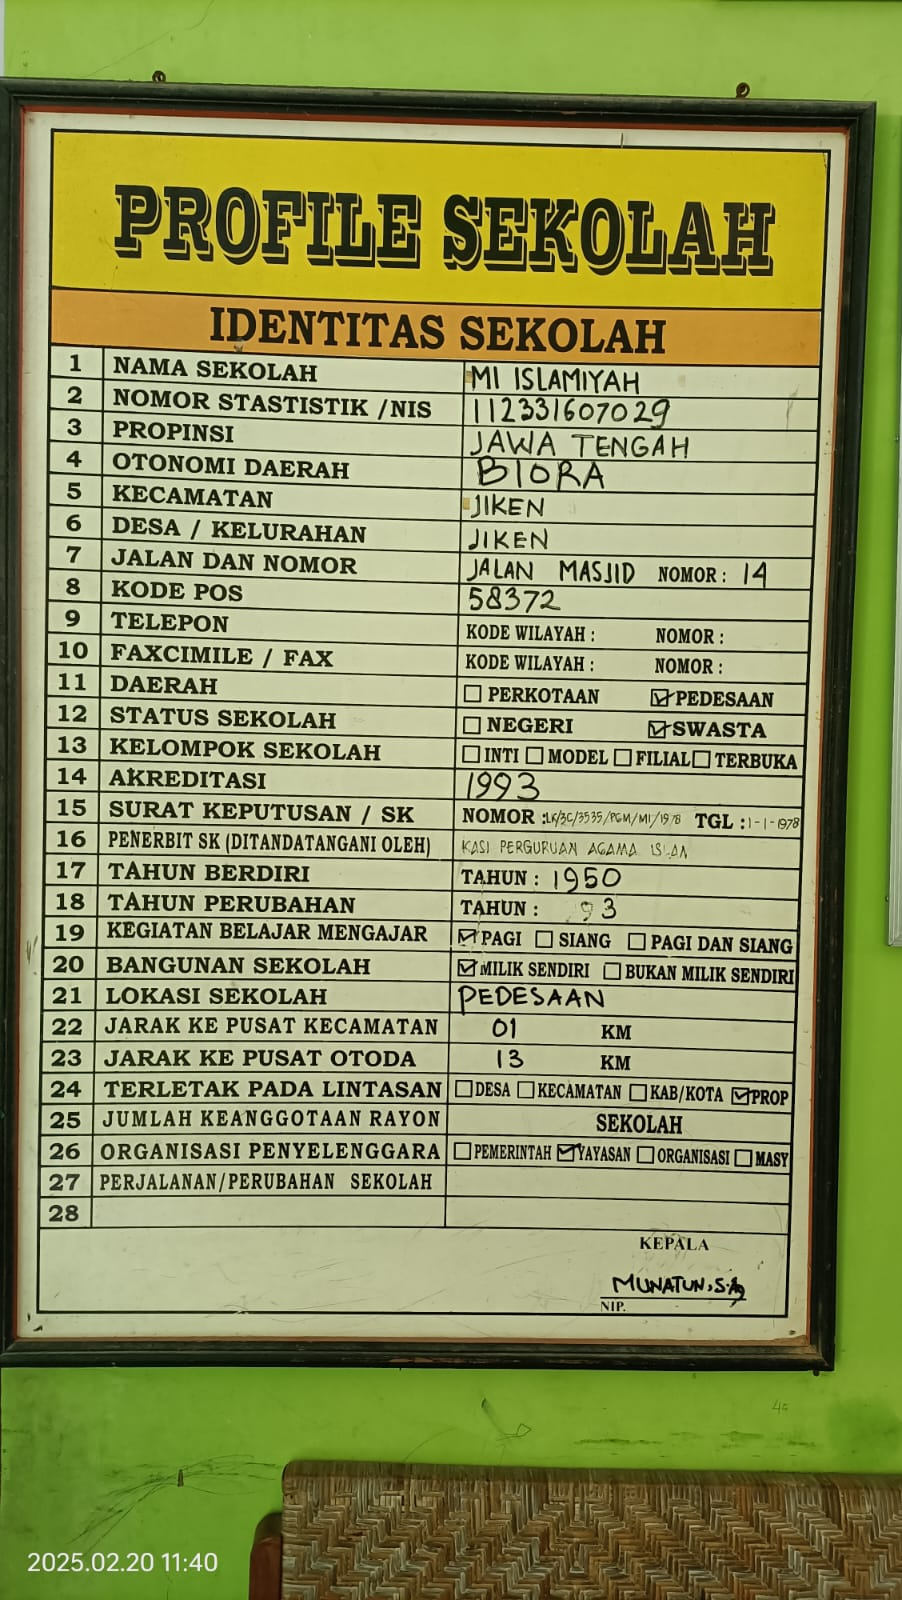 PROFILE SEKOLAH
IDENTITAS SEKOLAH
1 NAMA SEKOLAH MI ISLAMIYAH
2 NOMOR STASTISTIK /NIS 112331607029
3 PROPINSI JAWA TENGAH
4 OTONOMI DAERAH BlORA
5 KECAMATAN JIKEN
6 DESA / KELURAHAN JIKEN
7 JALAN DAN NOMOR JALAN MASJID NOMOR : 14
8 KODE POS 58372
9 TELEPON KODE WILAYAH : NOMOR :
10 FAXCIMILE / FAX KODE WILAYAH : NOMOR :
11 DAERAH ☐ PERKOTAAN ☑ PEDESAAN
12 STATUS SEKOLAH ☐ NEGERI ☑ SWASTA
13 KELOMPOK SEKOLAH ☐ INTI ☐ MODEL ☐ FILIAL ☐ TERBUKA
14 AKREDITASI 1993
15 SURAT KEPUTUSAN / SK NOMOR : LK/3C/3535/PGM/MI/1978 TGL : 1-1-1978
16 PENERBIT SK (DITANDATANGANI OLEH) KASI PERGURUAN AGAMA
17 TAHUN BERDIRI TAHUN : 1950
18 TAHUN PERUBAHAN TAHUN : 93
19 KEGIATAN BELAJAR MENGAJAR ☑ PAGI ☐ SIANG ☐ PAGI DAN SIANG
20 BANGUNAN SEKOLAH ☑ MILIK SENDIRI ☐ BUKAN MILIK SENDIRI
21 LOKASI SEKOLAH PEDESAAN
22 JARAK KE PUSAT KECAMATAN 01 KM
23 JARAK KE PUSAT OTODA 13 KM
24 TERLETAK PADA LINTASAN ☐ DESA ☐ KECAMATAN ☐ KAB/KOTA ☑ PROP
25 JUMLAH KEANGGOTAAN RAYON SEKOLAH
26 ORGANISASI PENYELENGGARA ☐ PEMERINTAH ☑ YAYASAN ☐ ORGANISASI ☐ MASY
27 PERJALANAN/PERUBAHAN SEKOLAH
28
KEPALA
MUNATUN, S.Ag
NIP.
2025.02.20 11:40